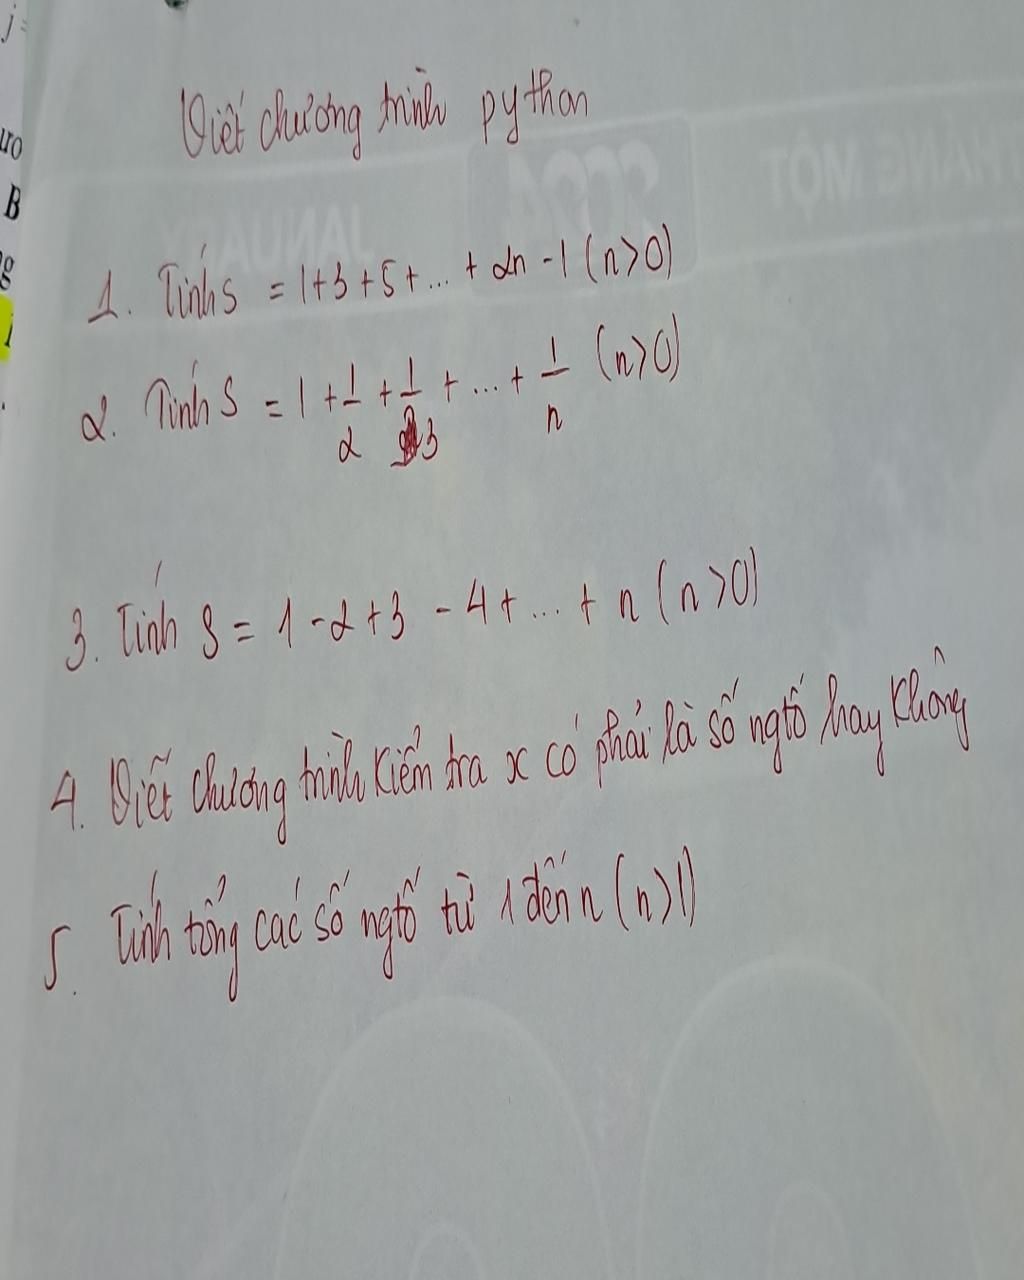 Viết chương trình python
1. Tính S = 1+3+5+...+ 2n-1 (n>0)
2. Tính S = 1 + 1/2 + 1/3 + ... + 1/n (n>0)
3. Tính S = 1 - 2 + 3 - 4 + ... + n (n>0)
4. Viết chương trình kiểm tra x có phải là số ngtố hay không
5. Tính tổng các số ngtố từ 1 đến n (n>1)
THÁNG MỘT
2024
JANUARY
B